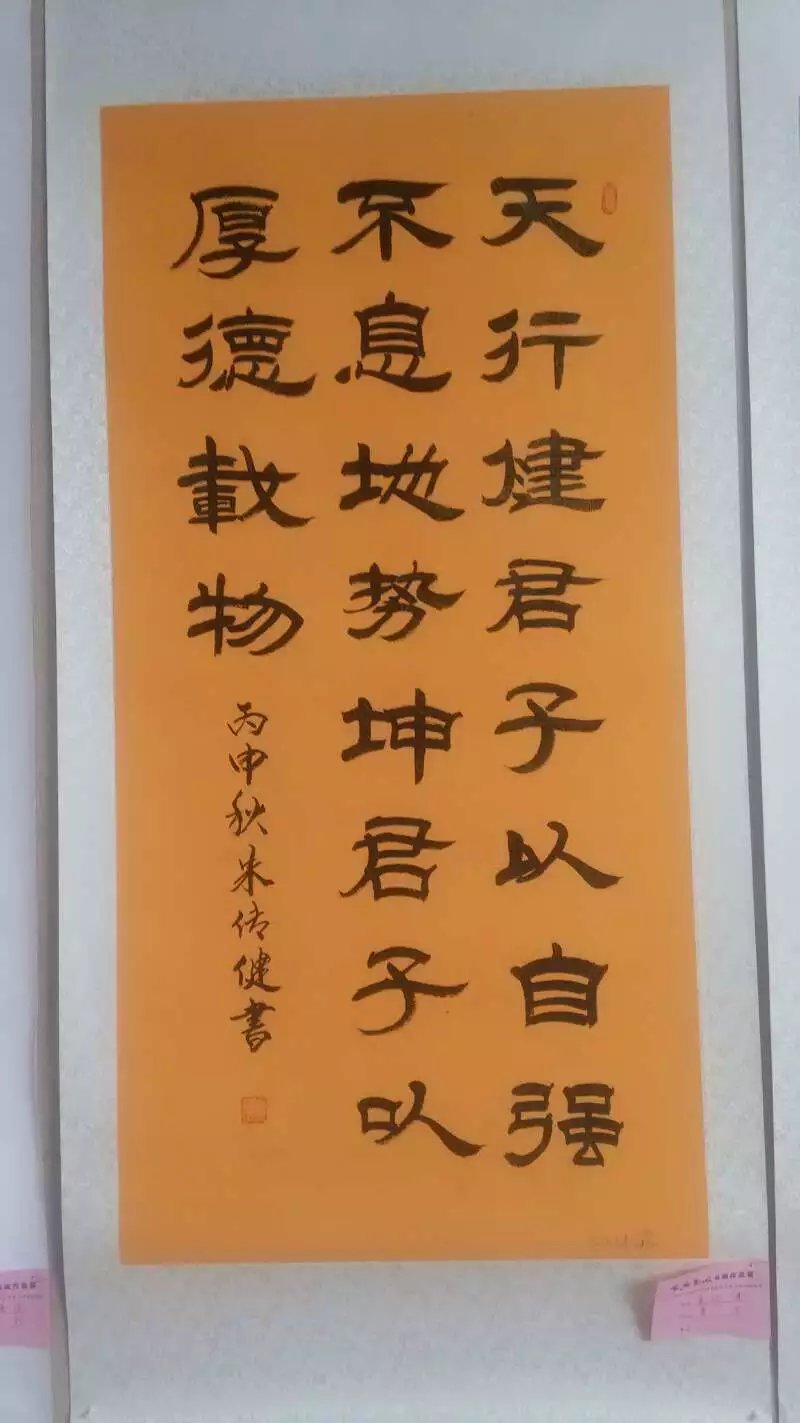 天行健君子以自强
不息地势坤君子以
厚德载物
丙申秋朱传健书